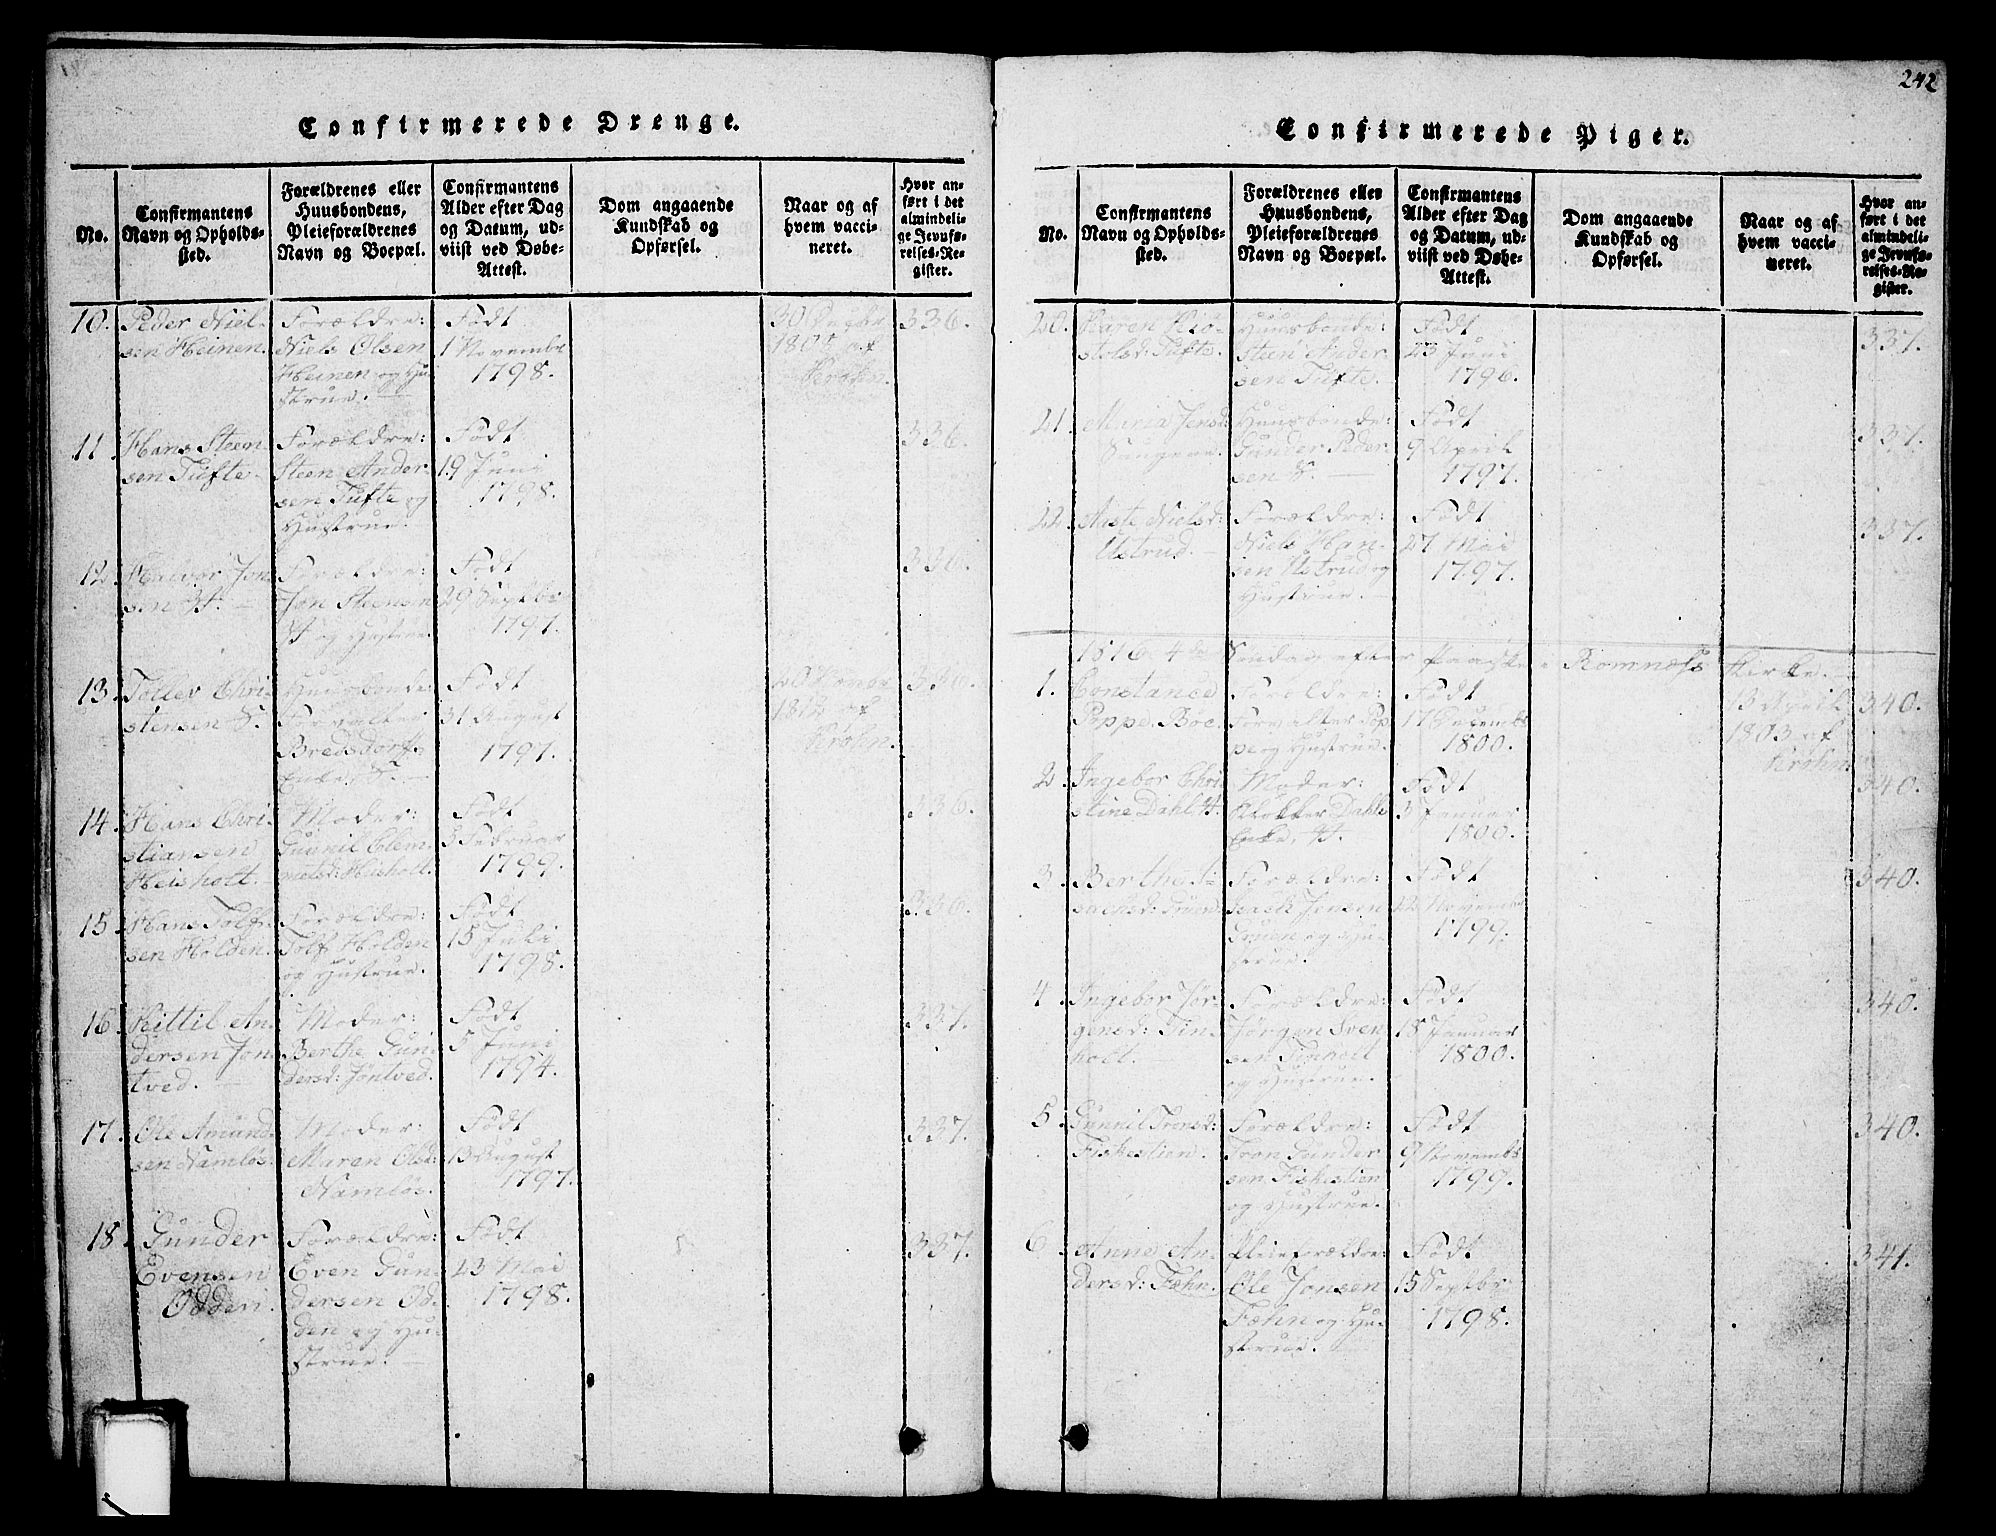 242
Confirmerede Drenge.
No.
Confirmantens
Navn og Opholds-
sted.
Forældrenes eller
Huusbondens,
Pleieforældrenes
Navn og Boepæl.
Confirmantens
Alder efter Dag
og Datum, ud-
viist ved Døbe-
Attest.
Dom angaaende
Kundskab og
Opførsel.
Naar og af
hvem vacci-
neret.
Hvor an-
ført i det
almindeli-
ge Jevnfø-
relses-Re-
gister.
10.
Peder Niel-
sen Heinen.
Forældre:
Niels Olsen
Heinen og Hu-
strue.
Født
1 November
1798.
30
af
Krohn.
336.
11.
Hans Steen
sen Tufte.
Forældre:
Steen Ander-
sen Tufte og
Hustrue.
Født
19 Juni
1798.
336.
12.
Halvor Jon
sen
Forældre:
Jon Steensen
og Hustrue.
Født
29 Septbr
1797.
336.
13.
Tollev Chri-
stensen S.
Huusbonde:
Forvalter
Bredsdorfs
Enke, S.
Født
31 August
1797.
20
1812 af
Krohn.
336.
14.
Hans Chri-
stiansen
Heisholt.
Moder:
Gunnil Clem-
metsd: Heisholt.
Født
5 Februar
1799.
336.
15.
Hans Tolf-
sen Holden.
Forældre:
Tolf Holden
og Hustrue.
Født
15 Juli
1798.
336.
16.
Kittil An-
dersen Jøn-
tved.
Moder:
Berthe Gun-
dersd: Jøntved.
Født
5 Juni
1794.
337.
17.
Ole Amund-
sen Namløs.
Moder:
Maren Olsd:
Namløs.
Født
13 August
1797.
337.
18.
Gunder
Evensen
Odden.
Forældre:
Even Gun-
dersen Od-
den og Hu-
strue.
Født
23 Mai
1798.
337.
Confirmerede Piger.
No.
Confirmantens
Navn og Opholds-
sted.
Forældrenes eller
Huusbondens,
Pleieforældrenes
Navn og Boepæl.
Confirmantens
Alder efter Dag
og Datum, ud-
viist ved Døbe-
Attest.
Dom angaaende
Kundskab og
Opførsel.
Naar og af
hvem vacci-
neret.
Hvor an-
ført i det
almindeli-
ge Jevnfø-
relses-Re-
gister.
20.
Karen Kiø-
stolsd: Tufte.
Huusbonde:
Steen Ander-
sen Tufte.
Født
23 Juni
1796.
337.
21.
Maria Jensd:
Huusbonde:
Gunder Peder-
sen S.
Født
9 April
1797.
337.
22.
Aaste Nielsd:
Ustrud.
Forældre:
Niels Han-
sen Ustrud og
Hustrue.
Født
27 Mai
1797.
337.
1816 4de Søndag efter Paaske i Romnæss Kirke.
1.
Constance
Poppe. Bøe.
Forældre:
Forvalter Pop-
pe og Hustrue.
Født
17 Decembr
1800.
13 April
1803 af
Krohn.
340.
2.
Ingebor Chri-
stine Dahl
Moder:
Klokker Dahls
Enke,
Født
3 Januar
1800.
340.
3.
Berthe I-
sacksd: Gruen.
Forældre:
Isach Jensen
Gruen og Hu-
strue.
Født
22 Novembr
1799.
340.
4.
Ingebor Jør-
gensd: Tin-
holt.
Forældre:
Jørgen Sven
sen Tinholt
og Hustrue.
Født
18 Januar
1800.
340.
5.
Gunnil Tronsd:
Fiskestien.
Forældre:
Tron Gunder
sen Fiskestien
og Hustrue.
Født
9 Novembr
1799.
340.
6.
Anne An-
dersd: Fæhn.
Pleieforældre:
Ole Jonsen
Fæhn og Hu-
strue.
Født
15 Septbr
1798.
341.